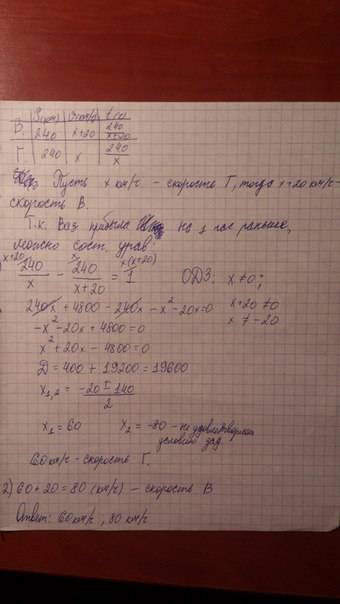 S(км) V(км/ч) t(ч)
В. 240 x+20 240/x+20
Г. 240 x 240/x
Пусть x км/ч - скорость Г, тогда x+20 км/ч -
скорость В.
Т.к. Ваз прибыл на 1 час раньше,
можно сост. урав.
x+20) 240/x - x) 240/x+20 = x(x+20) 1 ОДЗ: x ≠ 0;
x+20 ≠ 0
240x + 4800 - 240x - x² - 20x = 0 x ≠ -20
-x² - 20x + 4800 = 0
x² + 20x - 4800 = 0
D = 400 + 19200 = 19600
x1,2 = -20 ± 140/2
x1 = 60 x2 = -80 - не удовлетворяет
условию зад.
60 км/ч - скорость Г.
2) 60 + 20 = 80 (км/ч) - скорость В
Ответ: 60 км/ч, 80 км/ч